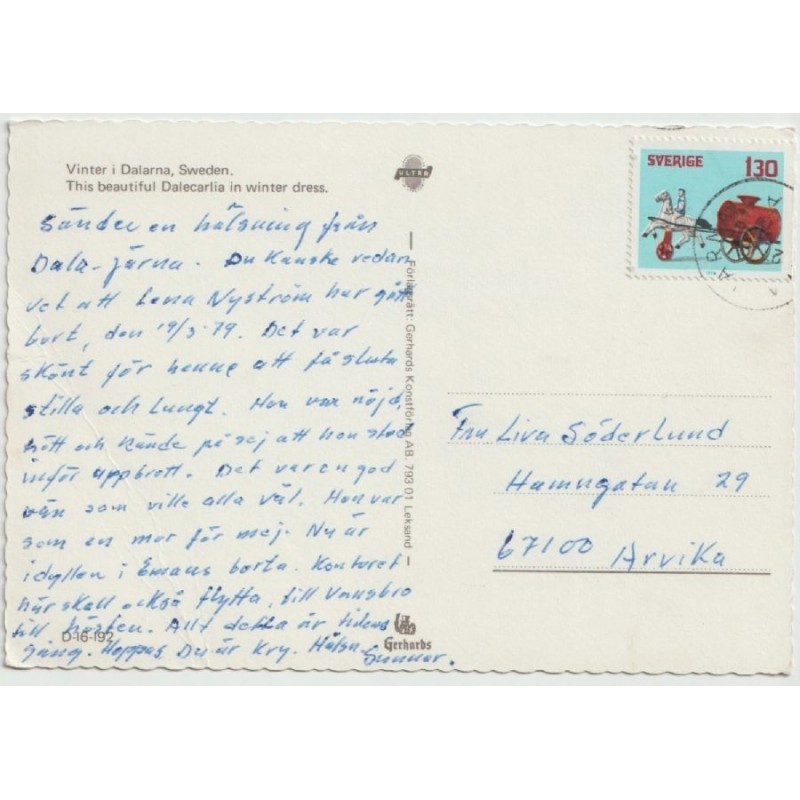 Vinter i Dalarna, Sweden.
This beautiful Dalecarlia in winter dress.
ULTRA
SVERIGE 130
Sänder en hälsning från
Dala-Järna. Du kanske redan
vet att Lena Nyström har gått
bort, den 19/3-79. Det var
skönt för henne att få sluta
stilla och lungt. Hon var nöjd,
mött och kände på sej att hon stod
inför uppbrott. Det var en god
vän som ville alla väl. Hon var
som en mor för mej. Nu är
idyllen i Emaus borta. Kontoret
här skall också flytta, till Vansbro
till hösten. Allt detta är tidens
gång. Hoppas Du är kry. Hälsn
Gunnar.
D-16-192
Förlagsrätt: Gerhards Konstförlag AB. 793 01 Leksand
Gerhards
Fru Liva Söderlund
Hamngatan 29
67100 Arvika